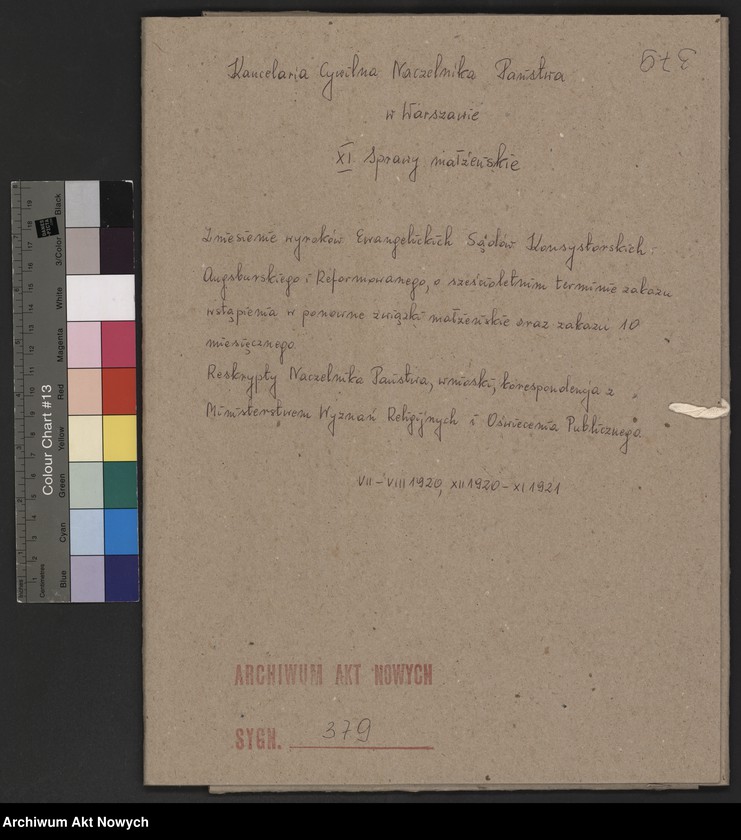 379
Kancelaria Cywilna Naczelnika Państwa
w Warszawie
XI Sprawy małżeńskie
Zniesienie wyroków Ewangelickich Sądów Konsystorskich:
Augsburskiego i Reformowanego, o sześcioletnim terminie zakazu
wstąpienia w ponowne związki małżeńskie oraz zakazu 10
miesięcznego.
Reskrypty Naczelnika Państwa, wnioski, korespondencja z
Ministerstwem Wyznań Religijnych i Oświecenia Publicznego
VII-VIII 1920, XII 1920-XI 1921
ARCHIWUM AKT NOWYCH
SYGN. 379
Colour Chart #13
Black
3/Color
White
Magenta
Red
Yellow
Green
Cyan
Blue
Centimetres
Inches
Archiwum Akt Nowych